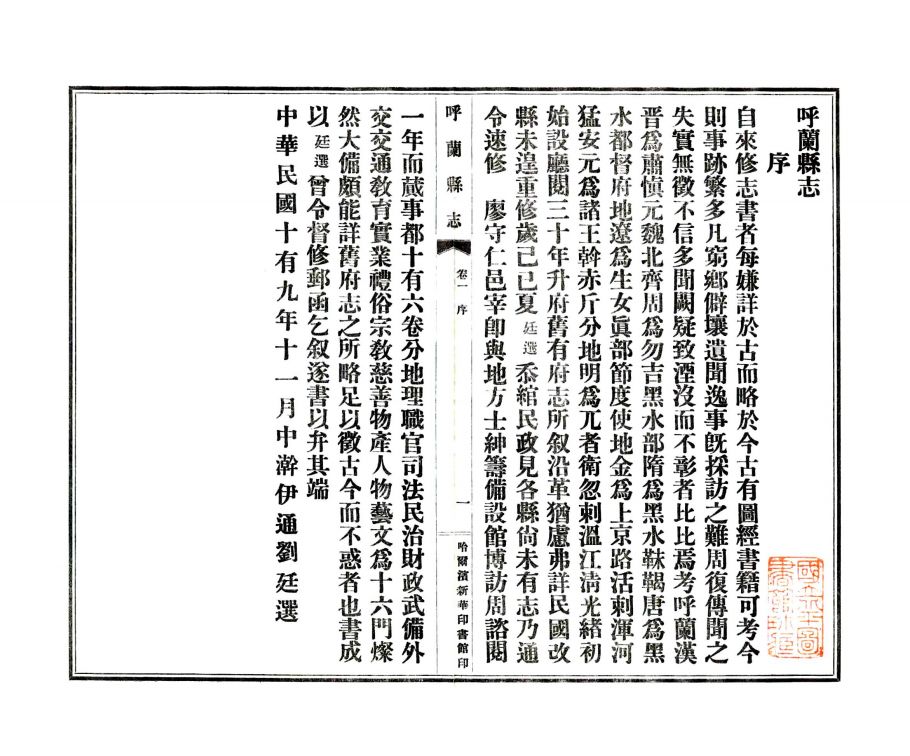 呼蘭縣志
序
自來修志書者每嫌詳於古而略於今古有圖經書籍可考今
則事跡繁多凡窮鄉僻壤遺聞逸事旣採訪之難周復傳聞之
失實無徵不信多聞闕疑致湮沒而不彰者比比焉考呼蘭漢
晉爲肅愼元魏北齊周爲勿吉黑水部隋爲黑水靺鞨唐爲黑
水都督府地遼爲生女眞部節度使地金爲上京路活剌渾河
猛安元爲諸王斡赤斤分地明爲兀者衛忽剌溫江淸光緖初
始設廳閱三十年升府舊有府志所叙沿革猶慮弗詳民國改
縣未遑重修歲己巳夏廷選忝綰民政見各縣尙未有志乃通
令速修 廖守仁邑宰卽與地方士紳籌備設館博訪周諮閱
呼蘭縣志
卷一 序
一
哈爾濱新華印書館印
一年而蕆事都十有六卷分地理職官司法民治財政武備外
交交通敎育實業禮俗宗敎慈善物產人物藝文爲十六門燦
然大備頗能詳舊府志之所略足以徵古今而不惑者也書成
以廷選曾令督修郵函乞叙遂書以弁其端
中華民國十有九年十一月中澣伊通劉廷選